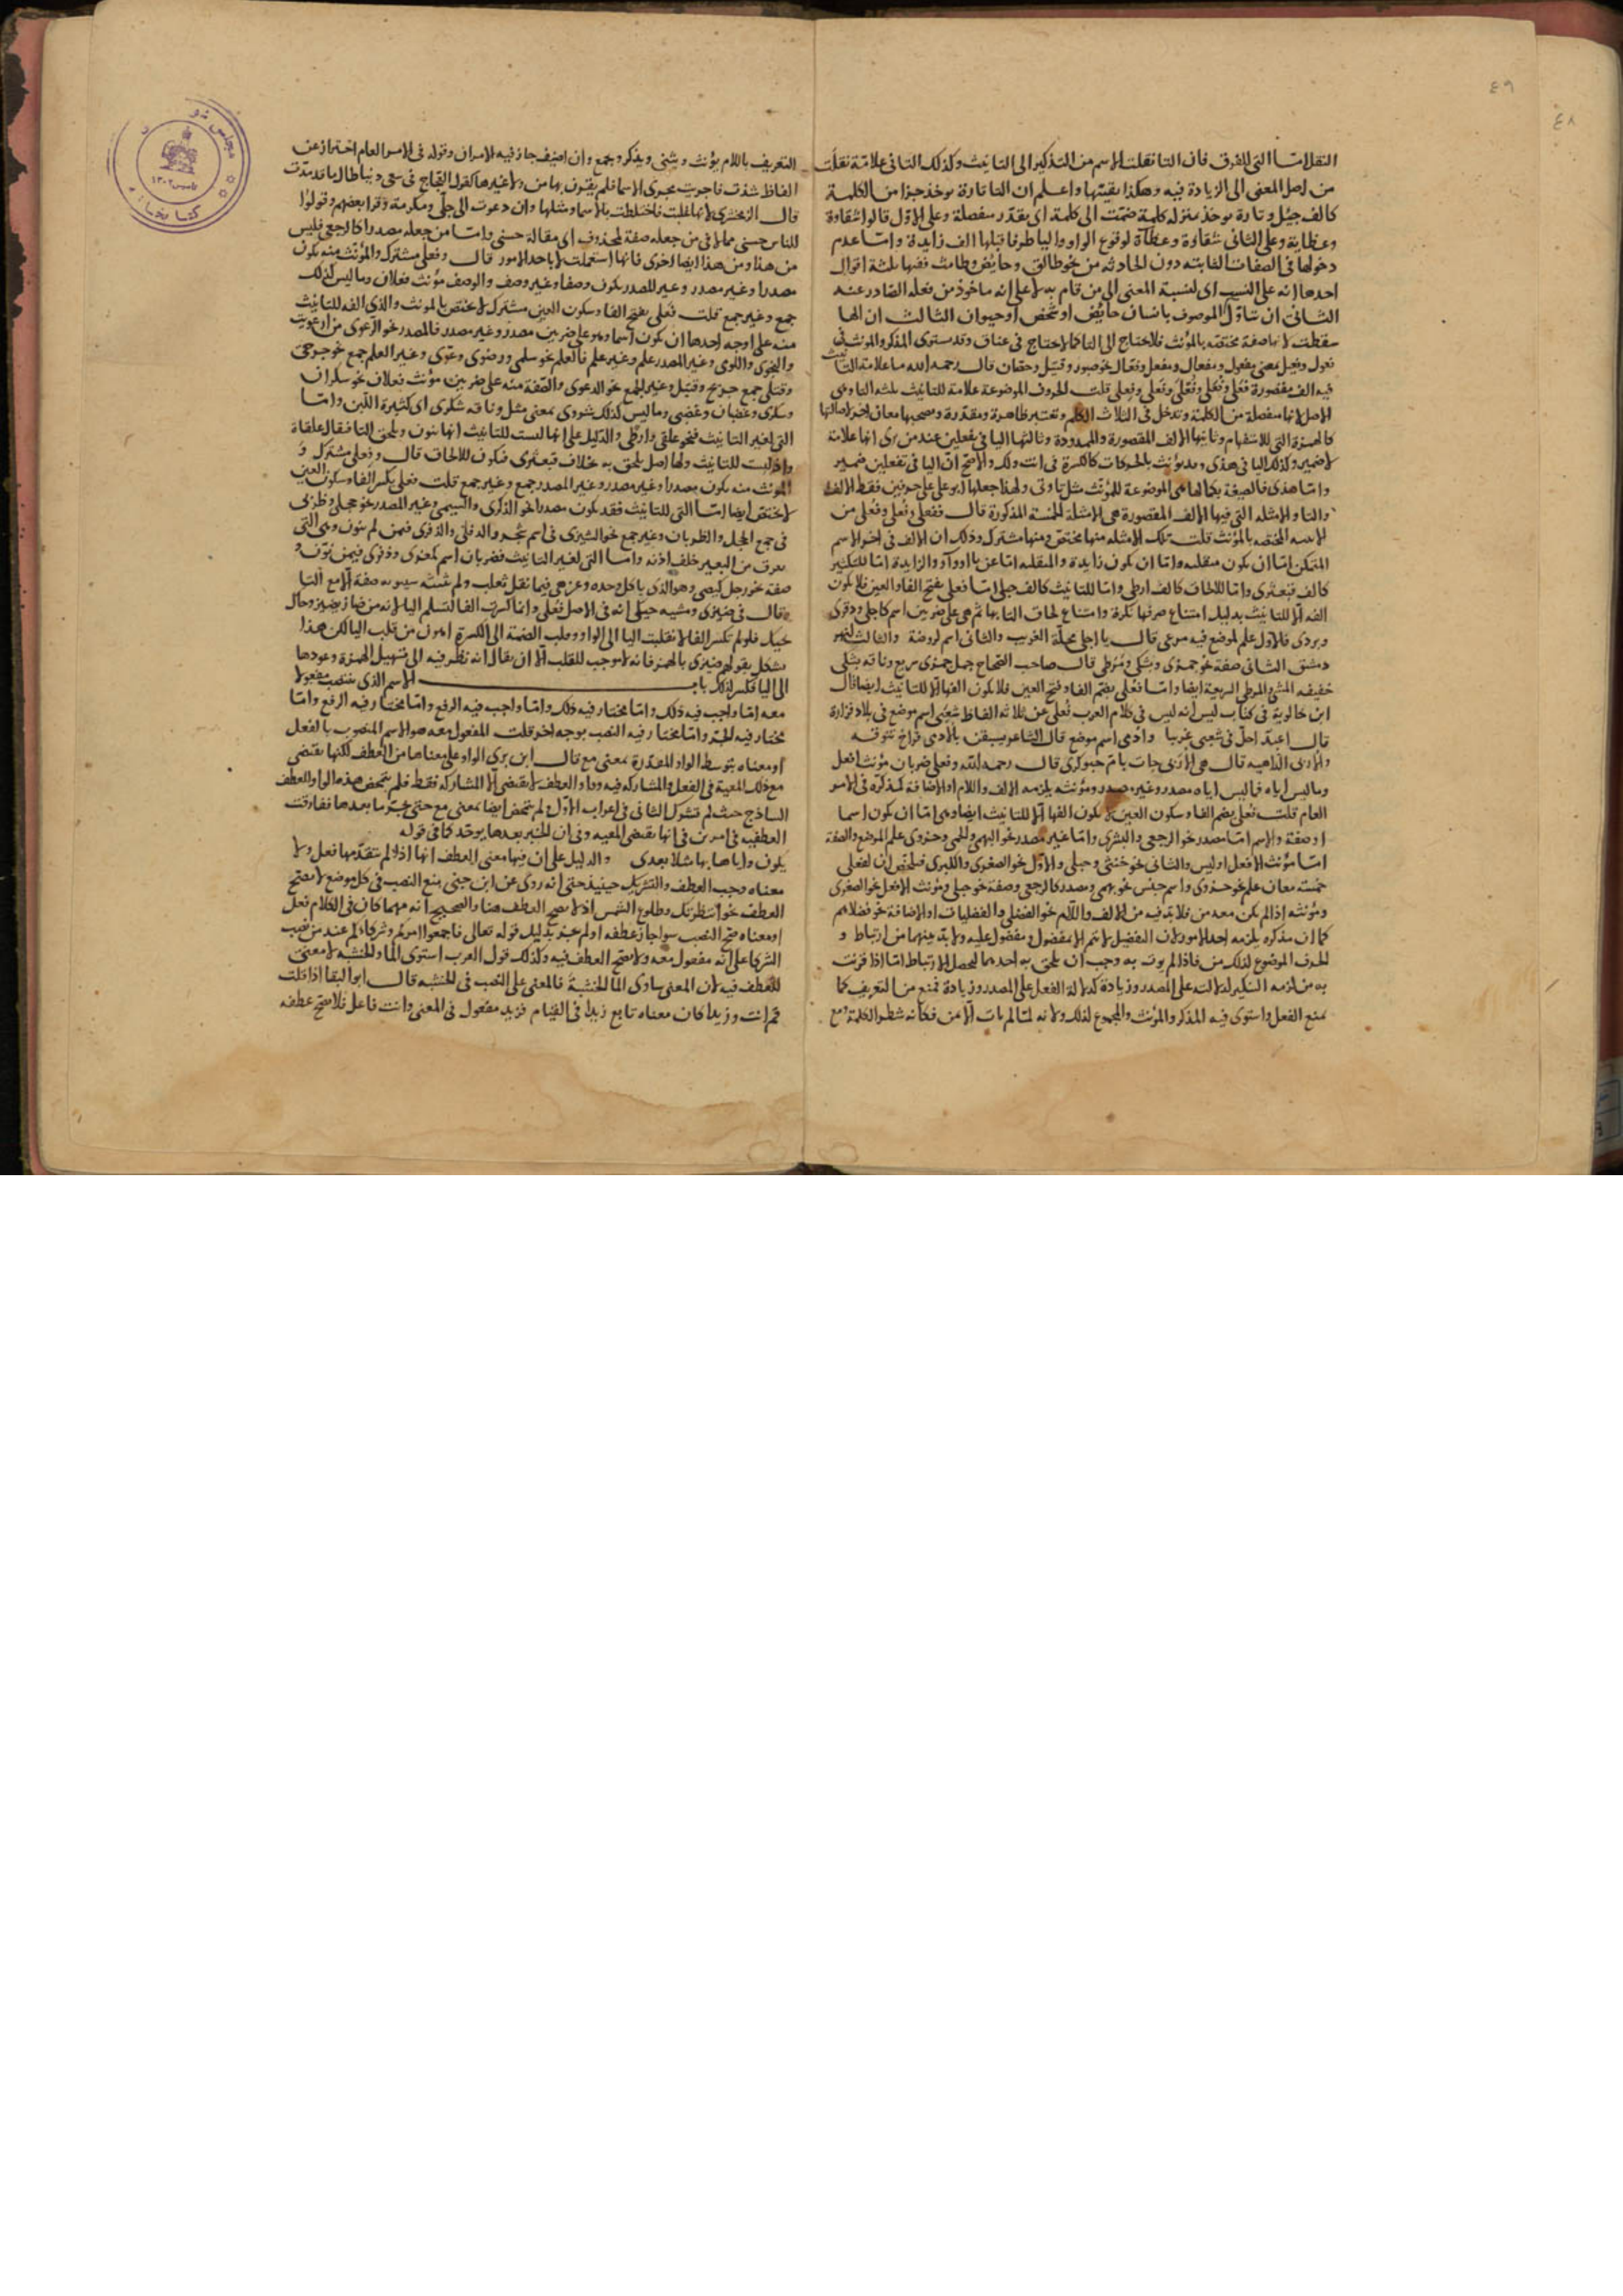 ٤٩
النقل امّا التى للفرق فان التا نقلت الاسم من التذكير الى التانيث وكذلك التا فى علامة نقلت
من اصل المعنى الى الزيادة فيه وهكذا بقيتها واعلم ان التا تارة يوخذ جزا من الكلمة
كالف حبلى وتارة يوخذ منزله كلمة ضمّت الى كلمة اى يقدر منفصلة وعلى الاوّل قالوا شقاوة
وعظاية وعلى الثانى شقاوة وعظاة لوقوع الواو واليا طرفا قبلها الف زايدة وامّا عدم
دخولها فى الصفات الثابته دون الحادثه من نحو طالق وحايض وطامث ففيها ثلثة اقوال
احدها انه على النسب اى لنسبة المعنى الى من قام به لا على انه ماخوذ من فعله الصادر عنه
الثانى ان تتاوّل الموصوف بانسان حايض او شخص او حيوان الثالث ان الها
سقطت لانها صفة مختصّه بالمؤنث فلا تحتاج الى التا كما لا تحتاج فى عناق وقد يستوى المذكر والمونث فى
فعول وفعيل بمعنى مفعول ومفعال ومفعل وفعّال نحو صبور وقتيل وحقان قال رحمه الله ما علامة التانيث
فيه الف مقصورة فعلى وفعلى وفعلى وفعلى وفعلى قلت الحروف الموضوعة علامة للتانيث ثلثه التا وهى
الاصل لانها منفصلة من الكلمة وتدخل فى الثلاث الكلم وتعتبر ظاهرة ومقدّرة وتصحبها معان اخر اصالتها
كالهمزة التى للاستفهام وثانيها الالف المقصورة والممدودة وثالثها اليا فى تفعلين عند من يرى انها علامة
لا ضمير وكذلك اليا فى هذى وقد يؤنث بالحركات كالكسرة فى انت ولك والاصح انّ اليا فى تفعلين ضمير
وامّا هذى فالصيغة بكمالها هى الموضوعة للمؤنث مثل تا وتى ولهذا جعلها ابو على على حرفين فقط الالف
والتا والامثلة التى فيها الالف المقصورة هى الامثلة الخمسة المذكورة قال ففعلى وفعلى وفعلى من
الابنيه المختصه بالمؤنث قلت تلك الامثله منها مختص ومنها مشترك وذلك ان الالف فى اخر الاسم
المتمكن امّا ان يكون منقلبه وامّا ان يكون زايدة والمنقلبه امّا عن يا او واو والزايدة امّا للتكثير
كالف قبعثرى وامّا للالحاق كالف ارطى وامّا للتانيث كالف حبلى امّا فعلى بفتح الفا والعين فلا يكون
الفه الّا للتانيث بدليل امتناع صرفها نكرة وامتناع لحاق التا بها ثم هى على ضربين اسم كاجلى ودقرى
وبردى فالاول علم لموضع فيه مرعى قال با اجلى محلّة الغريب والثانى اسم لروضة والثالث لنهر
دمشق الثانى صفة نحو جمزى وبشكى ومرطى قال صاحب الصحاح جمل جمزى سريع وناقه بشكى
خفيفه المشى والمرطى السريعة ايضا وامّا فعلى بضم الفا وفتح العين فلا يكون الفها الّا للتانيث ايضا قال
ابن خالوية فى كتاب ليس انه ليس فى كلام العرب فعلى عن ثلاثه الفاظ شعبى اسم موضع فى بلاد فزارة
قال اعبدا حلّ فى شعبى غريبا وادمى اسم موضع قال الشاعر يسبقن بالادمى فراخ تنوفه
والاربى الداهيه قال هى الاربى جات بام حبوكرى قال رحمه الله وفعلى ضربان مؤنث افعل
وما ليس اياه فما ليس اياه مصدر وغير مصدر ومؤنثه يلزمه الالف واللام او الاضافة كمذكره فى الامر
العام قلت فعلى بضم الفا وسكون العين لا يكون الفها الّا للتانيث ايضا وهى امّا ان يكون اسما
او صفة والاسم امّا مصدر نحو الرجعى والبشرى وامّا غير مصدر نحو البهمى والحمى وحزوى علم الموضع والصفة
امّا مؤنث الافعل او ليس والثانى نحو خنثى وحبلى والاوّل نحو الصغرى والكبرى فتلخص ان لفعلى
خمسه معان علم نحو حزوى واسم جنس نحو بهمى ومصدر كالرجعى وصفة نحو حبلى ومؤنث الافعل نحو الصغرى
ومؤنثه اذا لم يكن معه من فلابد فيه من الالف واللام نحو الفضلى والفضليات او الاضافة نحو فضلاهم
كما ان مذكره يلزمه احد الامور لان التفضيل لا يتم الا بمفضول ومفضول عليه ولابد بينهما من ارتباط و
الحرف الموضوع لذلك من فاذا لم يوت به وجب ان يلحق به احدهما ليحصل الارتباط امّا اذا قرنت
به من لزمه التنكير لدلالته على المصدر وزيادة كدلالة الفعل على المصدر وزيادة فمنع من التعريف كما
يمنع الفعل واستوى فيه المذكر والمؤنث والمجموع لذلك ولانه لمّا لم يات الّا بمن فكانه شطر الكلمة ومع
التعريف باللام يؤنث ويثنى ويذكر ويجمع وان اضيف جاز فيه الامران وقوله فى الامر العام احتراز عن
الفاظ شذت فاجريت مجرى الاسما فلم يقترن بها من ولا غيرها كقول العجاج فى سعى دنيا طال ما قد مدّت
قال الزمخشرى لانها غلبت فاختلطت بالاسما ومثلها وان دعوت الى جلّى ومكرمة وقرا بعضهم وقولوا
للناس حسنى مما لا فى من جعله صفة لمحذوف اى مقالة حسنى وامّا من جعله مصدرا كالرجعى فليس
من هذا ومن هذا ايضا اخرى فانها استعملت لا باحد الامور قال وفعلى مشترك والمؤنث منه يكون
مصدرا وغير مصدر وغير المصدر يكون وصفا وغير وصف والوصف مؤنث فعلان وما ليس كذلك
جمع وغير جمع قلت فعلى بفتح الفا وسكون العين مشترك لا يختص بالمونث والذى الفه للتانيث
منه على اوجه احدها ان يكون اسما وهو على ضربين مصدر وغير مصدر فالمصدر نحو الدعوى من ادعويت
والنجوى واللوى وغير المصدر علم وغير علم فالعلم نحو سلمى ورضوى وعوى وغير العلم جمع نحو جرحى
وقتلى جمع جريح وقتيل وغير الجمع نحو الدعوى والصّفة منه على ضربين مؤنث فعلان نحو سكران
وسكرى وغضبان وغضبى وما ليس كذلك شروى بمعنى مثل وناقه شكرى اى كثيرة اللبن وامّا
التى لغير التانيث فنحو علقى وارطى والدليل على انها ليست للتانيث انها تنون ويلحق التا فيقال علقاة
واذ ليست للتانيث ولها اصل يلحق به بخلاف قبعثرى فيكون للالحاق قال وفعلى مشترك و
المونث منه يكون مصدرا وغير مصدر وغير المصدر جمع وغير جمع قلت فعلى بكسر الفا وسكون العين
لا يختص ايضا امّا التى للتانيث فقد يكون مصدرا نحو الذكرى والسيمى وغير المصدر نحو حجلى وظربى
فى جمع الحجل والظربان وغير جمع نحو الشيزى فى اسم شجر والدفلى والذفرى فيمن لم ينون وهى التى
تعرق من البعير خلف اذنه وامّا التى لغير التانيث فضربان اسم كمعزى وذفرى فيمن نوّن و
صفة نحو رجل كيصى وهو الذى ياكل وحده وعزهى فيما نقل ثعلب ولم يثبته سيبويه صفة الّا مع التا
وقال فى ضيزى ومشيه حيكى انه فى الاصل فعلى وانما كسرت الفا لتسلم اليا لانه من ضاز يضيز وحاك
يحيك فلو لم تكسر الفا لانقلبت اليا الى الواو وقلب الضمة الى الكسرة اهون من قلب اليا لكن هذا
يشكل بقولهم ضئزى بالهمز فانه لا موجب للقلب الّا ان يقال انه نظر فيه الى تسهيل الهمزة وعودها
الى اليا فكسر لذلك باب الاسم الذى ينتصب مفعولا
معه امّا واجب فيه ذلك وامّا مختار فيه ذلك وامّا واجب فيه الرفع وامّا مختار فيه الرفع وامّا
مختار فيه الجر وامّا مختار فيه النصب بوجه اخر قلت المفعول معه هو الاسم المنصوب بالفعل
او معناه بتوسط الواو المقدّرة بمعنى مع قال ابن برى الواو على معناها من العطف لكنها يقتضى
مع ذلك المعية فى الفعل والمشاركه فيه وواو العطف لا يقتضى الّا المشاركه فقط فلم يتمحض هذه الواو للعطف
الساذج حيث لم تشرك الثانى فى اعراب الاوّل ولم يتمحض ايضا بمعنى مع حتى يجرّ ما بعدها ففارقت
العطفيه فى امرين فى انها يقتضى المعيه وفى ان الخبر بعدها يوحّد كما فى قوله
يكون واياها بها مثلا بعدى والدليل على ان فيها معنى العطف انها اذا لم يتقدّمها فعل ولا
معناه وجب العطف والتشريك حينيذ حتى انه روى عن ابن جنى يمنع النصب فى كل موضع لا يصح
العطف نحو انتظرتك وطلوع الشمس اذ لا يصح العطف هنا والصحيح انه مهما كان فى الكلام فعل
او معناه صح النصب سوا جاز عطفه او لم يجز بدليل قوله تعالى فاجمعوا امركم وشركاءكم عند من نصب
الشركا على انه مفعول معه ولا يصح العطف فيه وكذلك قول العرب استوى الما والخشبه لا معنى
للعطف فيه لان المعنى ساوى الما الخشبة فالمعنى على النصب فى الخشبه قال ابو البقا اذا قلت
قم انت وزيدا كان معناه تابع زيدا فى القيام فزيد مفعول فى المعنى وانت فاعل فلا يصح عطفه